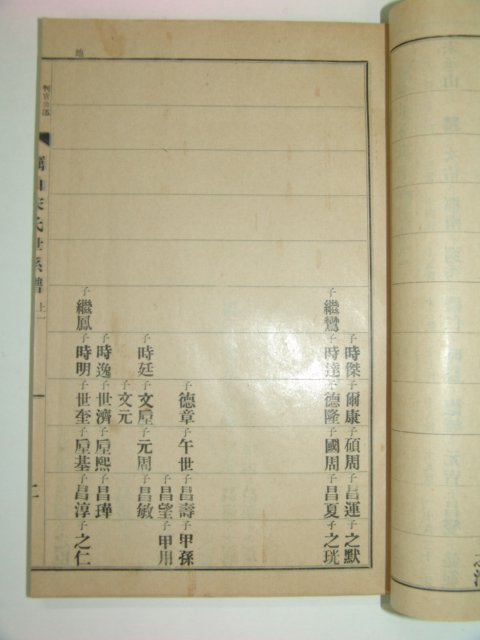 子時傑子爾康子碩周子昌運子之默
子繼鸞子時達子德隆子國周子昌夏子之珖
子德章子午世子昌壽子甲孫
子昌望子甲用
子時廷子文垕子元周子昌敏
子文元
子時逸子世濟子垕熙子昌
子繼鳳子時明子世奎子垕基子昌淳子之仁
地
判官公派
氏世系譜 上
二